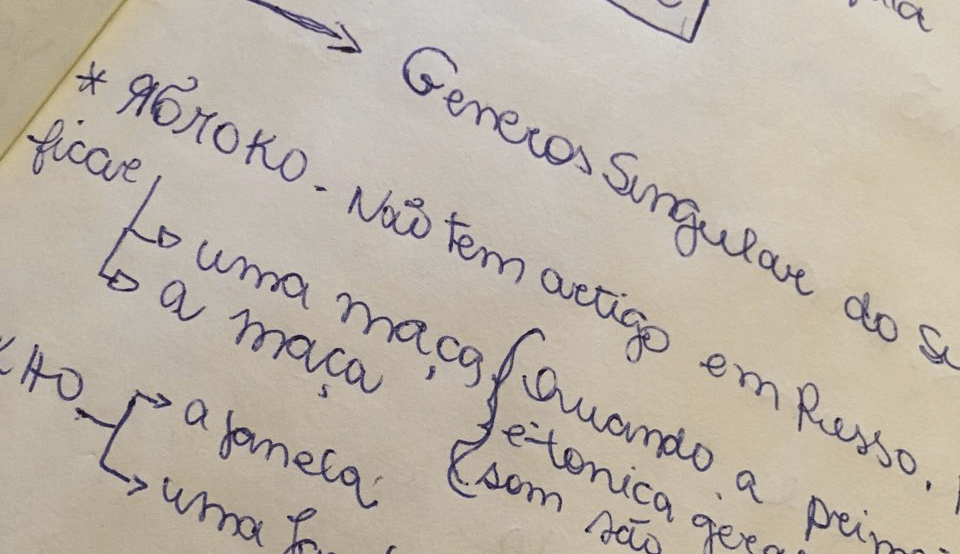 Generos Singular do Su
* Яблоко. Não tem artigo em Russo.
ficar
uma maça
a maça
Quando a primei
é tonica gera
som são
KHO
a janela
uma jan